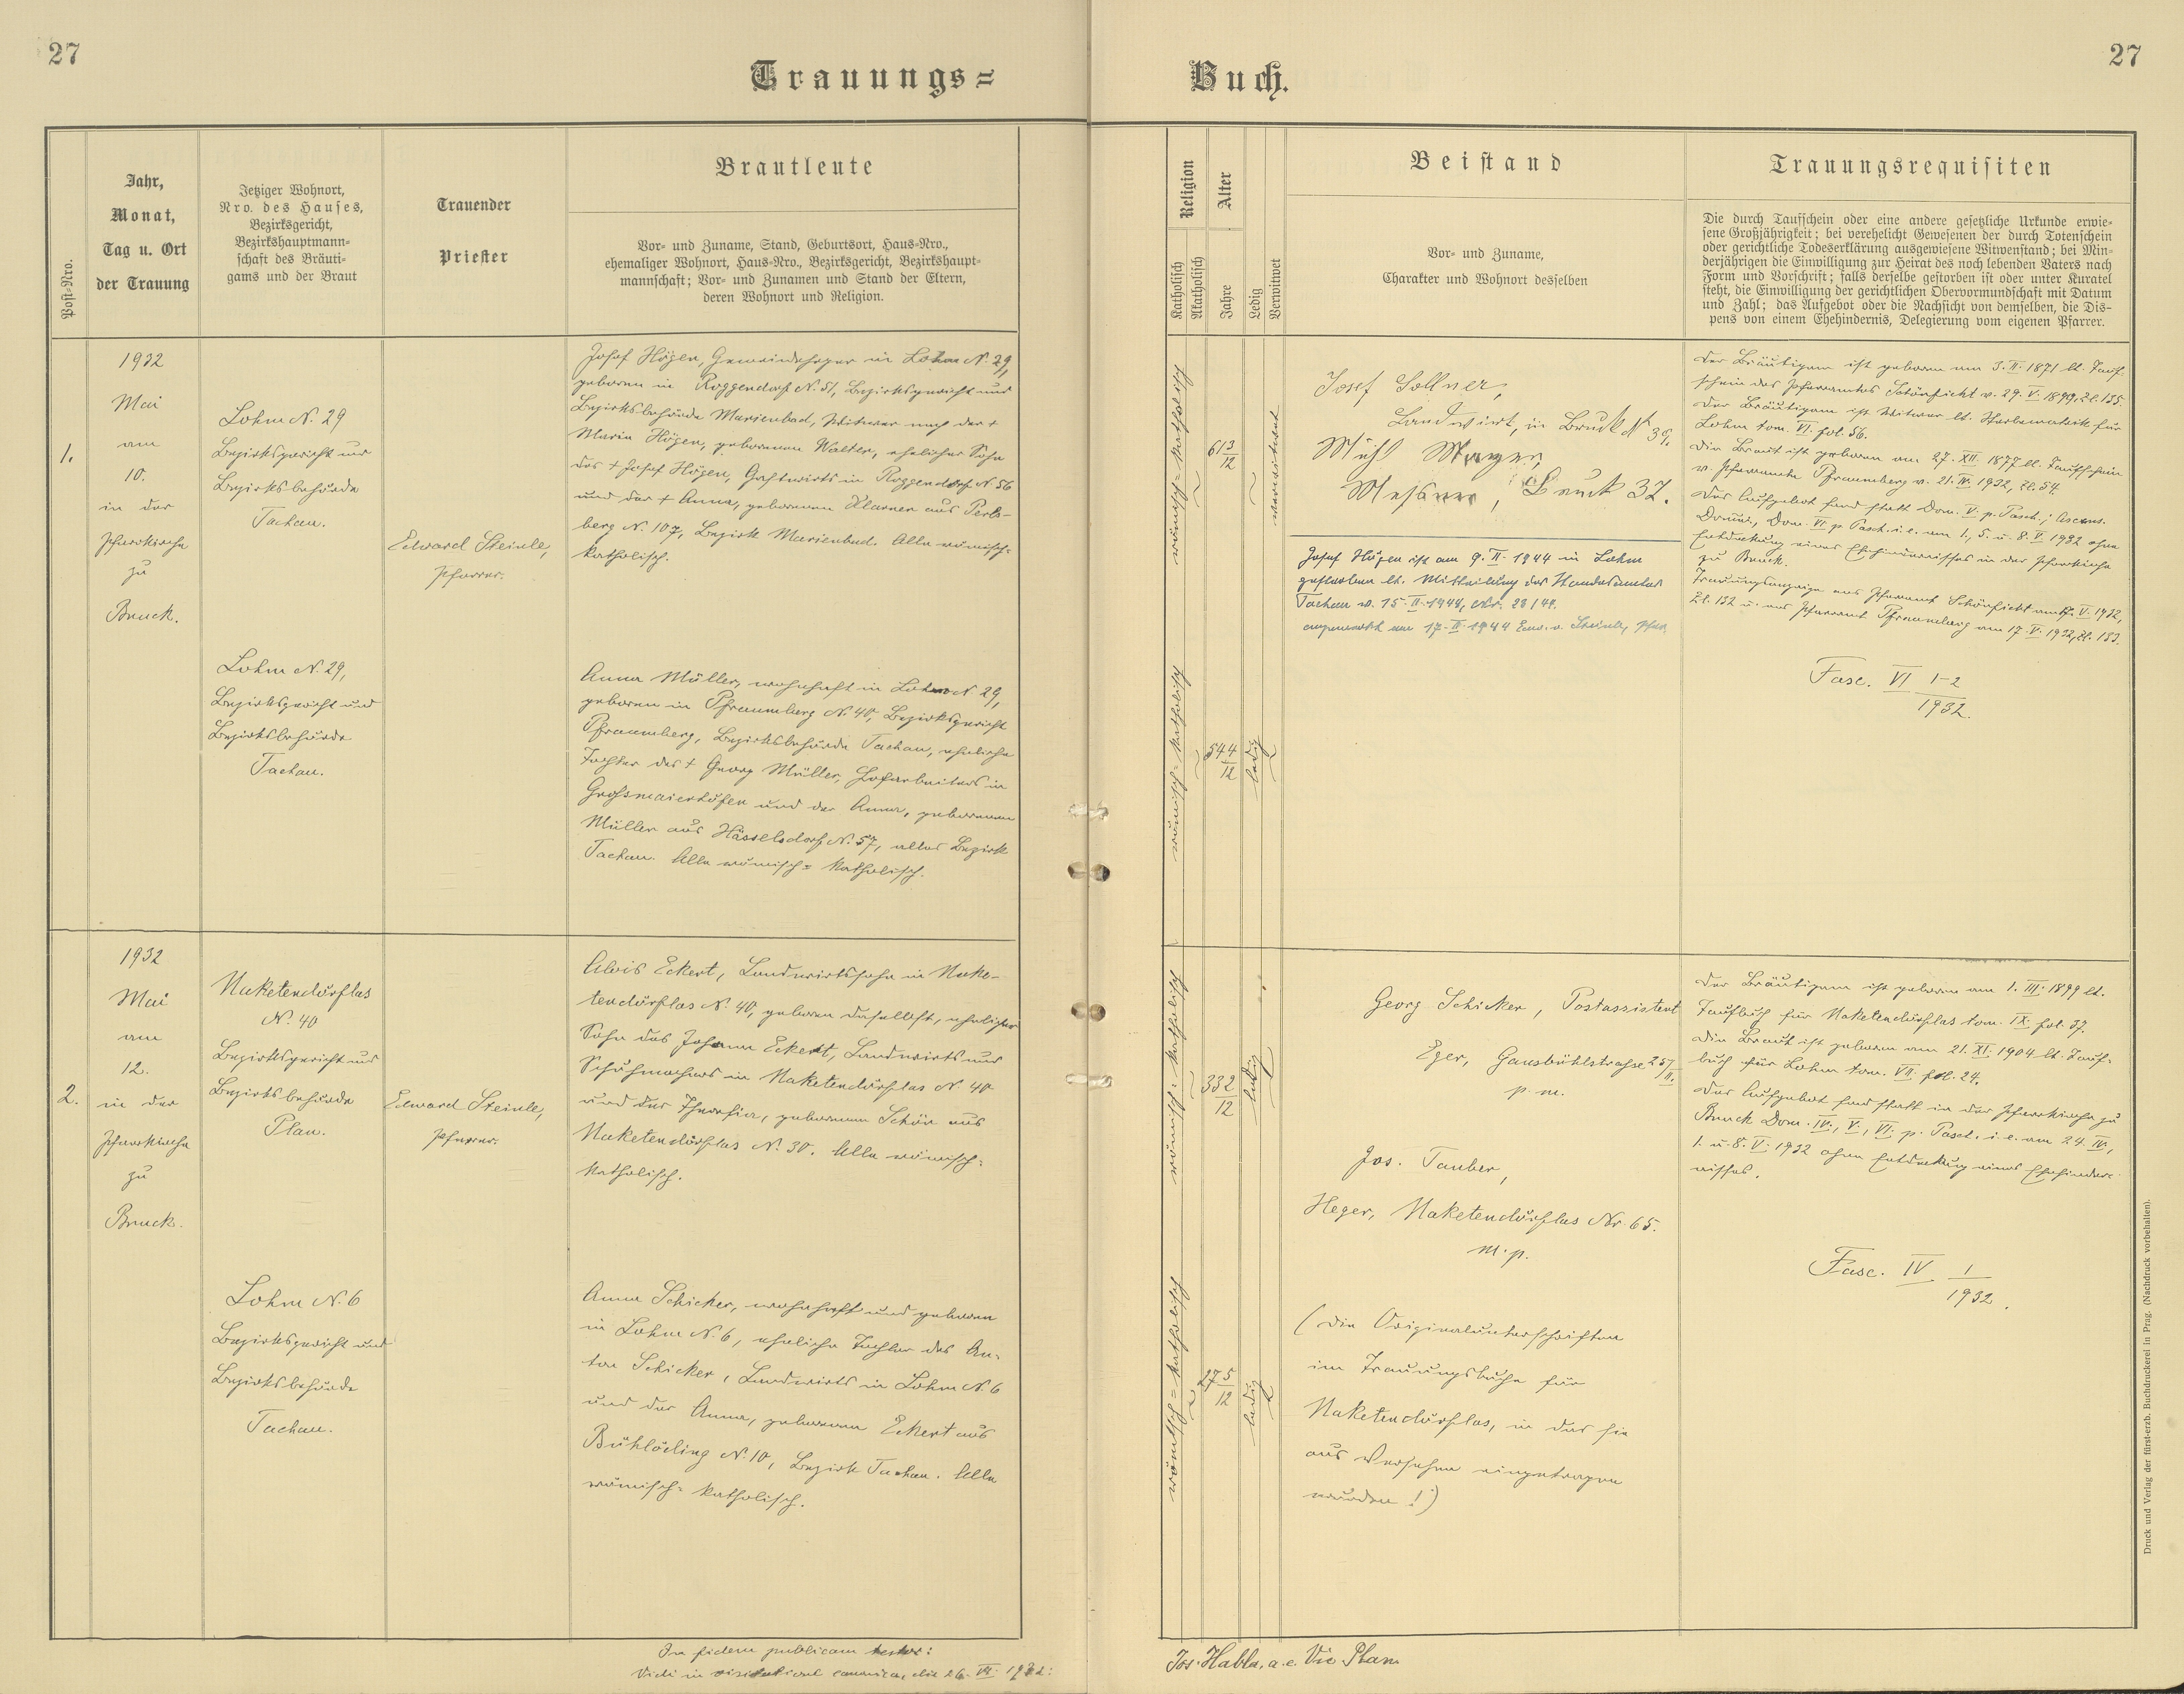 27
27
Trauungs=
Buch.
Post-Nro.
Jahr,
Monat,
Tag u. Ort
der Trauung
Jetziger Wohnort,
Nro. des Hauses,
Bezirksgericht,
Bezirkshauptmann=
schaft des Bräuti=
gams und der Braut
Trauender
Priester
Brautleute
Vor= und Zuname, Stand, Geburtsort, Haus-Nro.,
ehemaliger Wohnort, Haus-Nro., Bezirksgericht, Bezirkshaupt=
mannschaft; Vor= und Zunamen und Stand der Eltern,
deren Wohnort und Religion.
Religion
Katholisch
Akatholisch
Alter
Jahre
Ledig
Verwitwet
Beistand
Vor= und Zuname,
Charakter und Wohnort desselben
Trauungsrequisiten
Die durch Taufschein oder eine andere gesetzliche Urkunde erwie=
sene Großjährigkeit; bei verehelicht Gewesenen der durch Totenschein
oder gerichtliche Todeserklärung ausgewiesene Witwenstand; bei Min=
derjährigen die Einwilligung zur Heirat des noch lebenden Vaters nach
Form und Vorschrift; falls derselbe gestorben ist oder unter Kuratel
steht, die Einwilligung der gerichtlichen Obervormundschaft mit Datum
und Zahl; das Aufgebot oder die Nachsicht von demselben, die Dis=
pens von einem Ehehindernis, Delegierung vom eigenen Pfarrer.
1.
1932
Mai
am
10.
in der
Pfarrkirche
zu
Bruck.
Lohm N. 29
Bezirksgericht und
Bezirksbehörde
Tachau.
Edward Steinle,
Pfarrer.
Josef Högen, in Lohm N. 29,
geboren in Roggendorf N. 51, Bezirksgericht und
Bezirksbehörde Marienbad, Witwer nach der †
Maria Högen, geborenen Walter, ehelicher Sohn
des † Josef Högen, Gastwirts in Roggendorf N. 56
und der † Anna, geborenen Klarner aus Perls-
berg N. 107, Bezirk Marienbad. Alle römisch=
katholisch.
Lohm N. 29,
Bezirksgericht und
Bezirksbehörde
Tachau.
Anna Müller, wohnhaft in Lohm N. 29,
geboren in Pfraumberg N. 40, Bezirksgericht
Pfraumberg, Bezirksbehörde Tachau, eheliche
Tochter des † Georg Müller, Hofarbeiters in
Grossmaierhöfen und der Anna, geborenen
Müller aus Hässelsdorf N. 57, alles Bezirk
Tachau. Alle römisch= katholisch.
römisch= katholisch
61 3/12
verwitwet
römisch= katholisch
54 4/12
ledig
Josef Sollner,
Landwirt, in Bruck N 39,
Mich Mayer,
Messner, Bruck 37.
Josef Högen ist am 9. II. 1944 in Lohm
gestorben lt. Mitteilung des Standesamtes
Tachau v. 15. II. 1944, Nr. 23/44.
angemerkt am 17. II. 1944 Edw. v. Steinle, Pfar.
Der Bräutigam ist geboren am 3. II. 1871 lt. Tauf-
schein des Pfarramtes Schönficht v. 29. V. 1899, Zl. 135.
Der Bräutigam ist Witwer lt. Sterbematrik für
Lohm tom. VI. fol. 56.
Die Braut ist geboren am 27. XII. 1877 lt. Taufschein
v. Pfarramte Pfraumberg v. 21. IV. 1932, Zl. 54.
Das Aufgebot fand statt Dom. V. p. Pasch.; Ascens.
Domini, Dom. VI. p. Pasch. i. e. am 1., 5. u. 8. V. 1932 ohne
Entdeckung eines Ehehindernisses in der Pfarrkirche
zu Bruck.
Trauungsanzeige ans Pfarramt Schönficht am 17. V. 1932,
Zl. 132 u. ans Pfarramt Pfraumberg am 17. V. 1932, Zl. 133.
Fasc. VI 1-2
1932.
2.
1932
Mai
am
12.
in der
Pfarrkirche
zu
Bruck.
Naketendörflas
N. 40
Bezirksgericht und
Bezirksbehörde
Plan.
Edward Steinle,
Pfarrer.
Alois Eckert, Landwirtssohn in Nake-
tendörflas N. 40, geboren daselbst, ehelicher
Sohn des Johann Eckert, Landwirts und
Schuhmachers in Naketendörflas N. 40
und der Theresia, geborenen Schön aus
Naketendörflas N. 30. Alle römisch=
katholisch.
Lohm N. 6
Bezirksgericht und
Bezirksbehörde
Tachau.
Anna Schicker, wohnhaft und geboren
in Lohm N. 6, eheliche Tochter des An-
ton Schicker, Landwirts in Lohm N. 6
und der Anna, geborenen Eckert aus
Bühlöding N. 10, Bezirk Tachau. Alle
römisch= katholisch.
römisch= katholisch
33 2/12
ledig
römisch= katholisch
27 5/12
ledig
Georg Schicker, Postassistent
Eger, Gansbühlstrasse 25/II.
p. m.
Jos. Tauber,
Heger, Naketendörflas Nr. 65.
m. p.
(Die Originalunterschriften
im Trauungsbuche für
Naketendörflas, in das sie
aus Versehen eingetragen
wurden!)
Der Bräutigam ist geboren am 1. III. 1899 lt.
Taufbuch für Naketendörflas tom. IX. fol. 37.
Die Braut ist geboren am 21. XI. 1904 lt. Tauf-
buch für Lohm tom. VII. fol. 24.
Das Aufgebot fand statt in der Pfarrkirche zu
Bruck Dom. IV., V., VI. p. Pasch. i. e. am 24. IV.,
1. u. 8. V. 1932 ohne Entdeckung eines Ehehinder-
nisses.
Fasc. IV. 1
1932.
In fidem publicam testor:
Vidi in visitatione canonica, die 26. VII. 1932:
Jos. Habla, a. e. Vic. Plan
Druck und Verlag der fürst-erzb. Buchdruckerei in Prag. (Nachdruck vorbehalten).